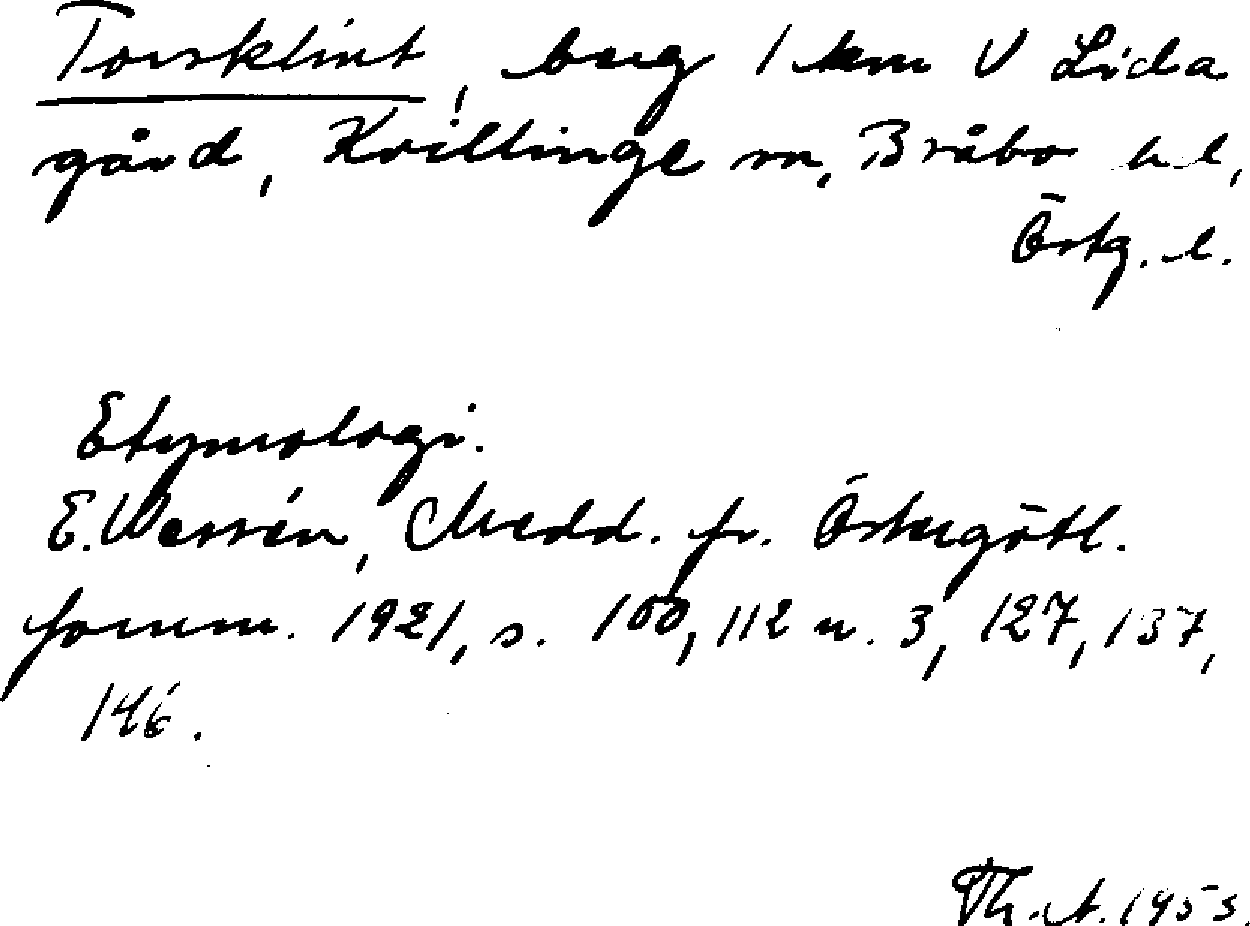 Torsklint, berg 1 km V Lida
gård, Kvillinge sn, Bråbo hd,
Östg. l.
Etymologi.
E. Wessén, Medd. fr. Östergötl.
fornm. 1921, s. 100, 112 n. 3, 127, 137,
146.
Th. A. 1953.